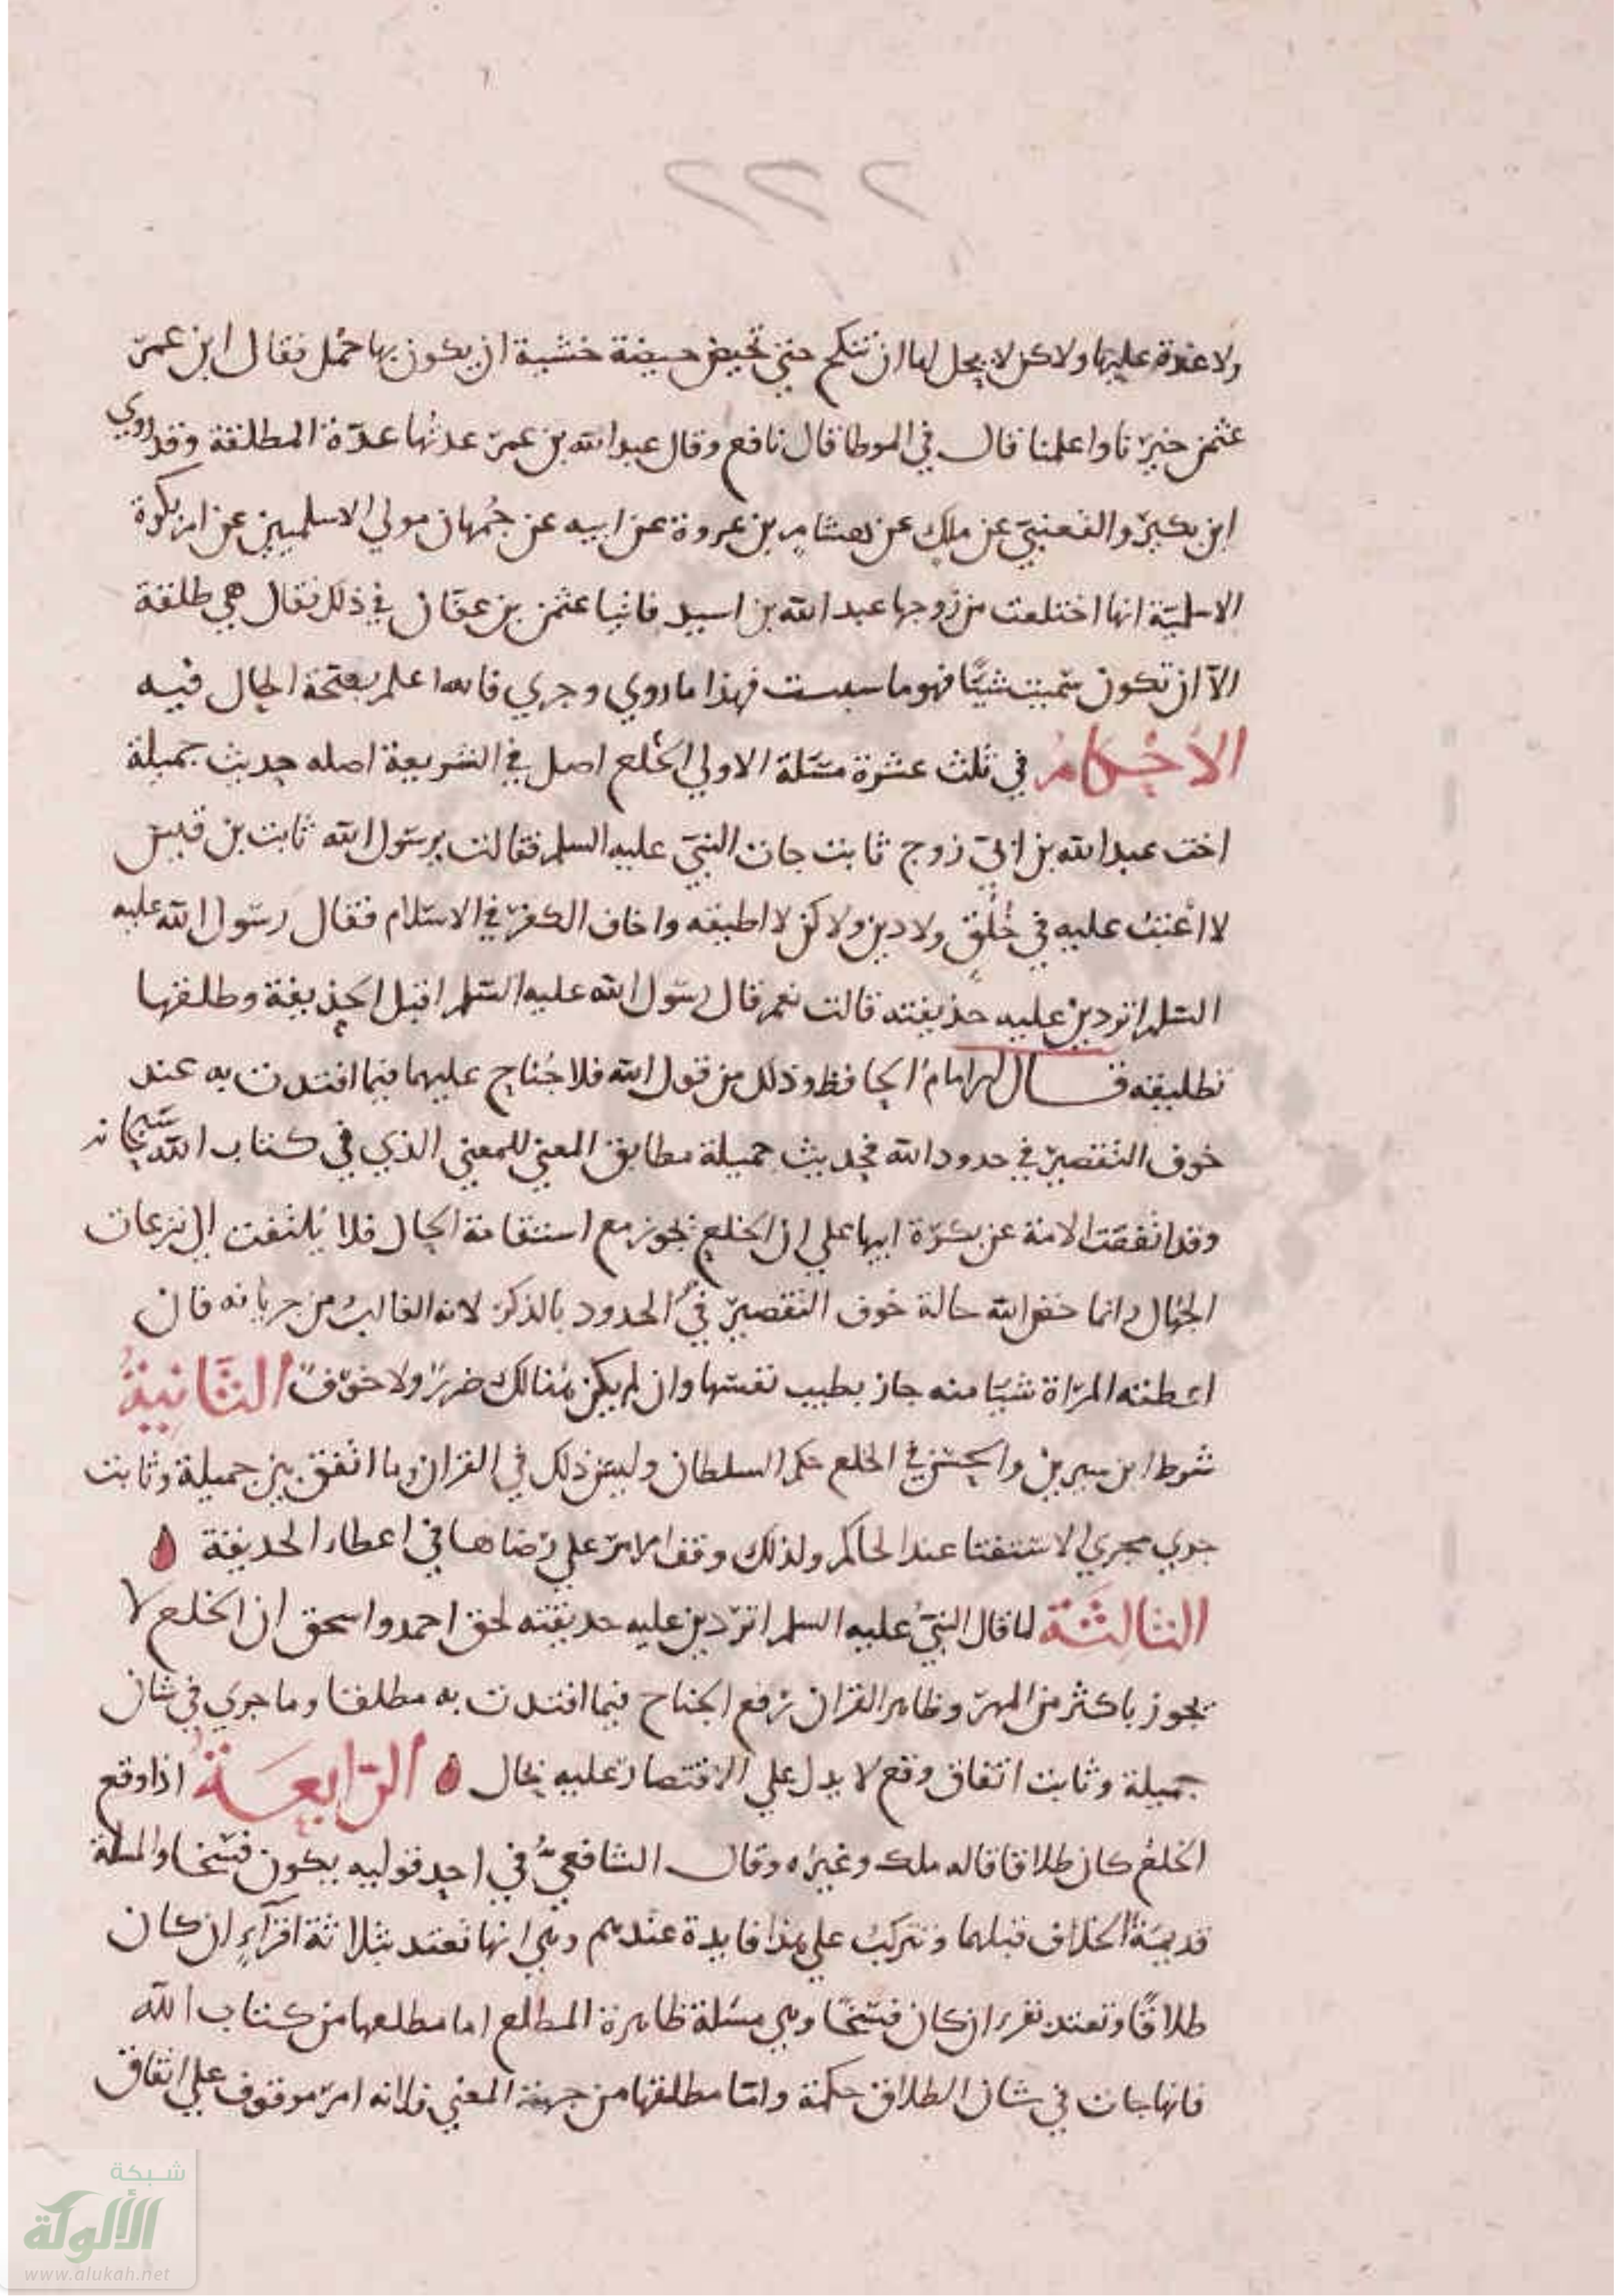 ٢٢٢
ولا عدة عليها ولاكن لا يحل لها ان تنكح حتى تحيض حيضة خشية ان يكون بها حمل فقال ابن عمر
عثمن خيرنا واعلمنا قال في الموطا قال نافع وقال عبد الله بن عمر عدتها عدة المطلقة وقد روي
ابن بكير والقعنبي عن ملك عن هشام بن عروة عن ابيه عن جمهان مولي الاسلميين عن ام بكرة
الاسلمية انها اختلعت من زوجها عبد الله بن اسيد فاتيا عثمن بن عفان في ذلك فقال هي طلقة
الا ان تكون سميت شيا فهو ما سميت فهذا ما روي وجري فالله اعلم بصحة الحال فيه
الاحكام في ثلث عشرة مسلة الاولي الخلع اصل في الشريعة اصله حديث جميلة
اخت عبد الله بن ابي زوج ثابت جات النبي عليه السلم فقالت يرسول الله ثابت بن قيس
لا اعتب عليه في خلق ولا دين ولاكن لا اطيقه واخاف الكفر في الاسلام فقال رسول الله عليه
السلم اتردين عليه حديقته قالت نعم قال رسول الله عليه السلم اقبل الحديقة وطلقها
تطليقة قال الامام الحافظ وذلك من قول الله فلا جناح عليهما فيما افتدت به عند
خوف التقصير في حدود الله فحديث جميلة مطابق المعني للمعني الذي في كتاب الله سبحانه
وقد اتفقت الامة عن بكرة ابيها علي ان الخلع يجوز مع استقامة الحال فلا يلتفت الى نزعات
الجهال وانما خص الله حالة خوف التقصير في الحدود بالذكر لانه الغالب من جريانه فان
اعطته المراة شيا منه جاز بطيب نفسها وان لم يكن هنالك ضرر ولا خوف الثانية
شرط ابن سيرين والحسن في الخلع حكم السلطان وليس ذلك في القران وما اتفق بين جميلة وثابت
جري مجري الاستفتا عند الحاكم ولذلك وقف الامر علي رضاها في اعطاء الحديقة
الثالثة لما قال النبي عليه السلم اتردين عليه حديقته لحق احمد واسحق ان الخلع لا
يجوز باكثر من المهر وظاهر القران رفع الجناح فيما افتدت به مطلقا وما جري في شان
جميلة وثابت اتفاق وقع لا يدل علي الاقتصار عليه بحال الرابعة اذا وقع
الخلع كان طلاقا قاله ملك وغيره وقال الشافعي في احد قوليه يكون فسخا والمسلة
قديمة الخلاف قبلهما وتتركب علي هذا فايدة عندهم وهي انها تعتد بثلاثة اقراء ان كان
طلاقا وتعتد بقرء ان كان فسخا وهي مسلة ظاهرة المطلع اما مطلعها من كتاب الله
فانها جات في شان الطلاق حكمة واما مطلعها من جهة المعني فلانه امر موقوف علي اتفاق
شبكة
الألوكة
www.alukah.net